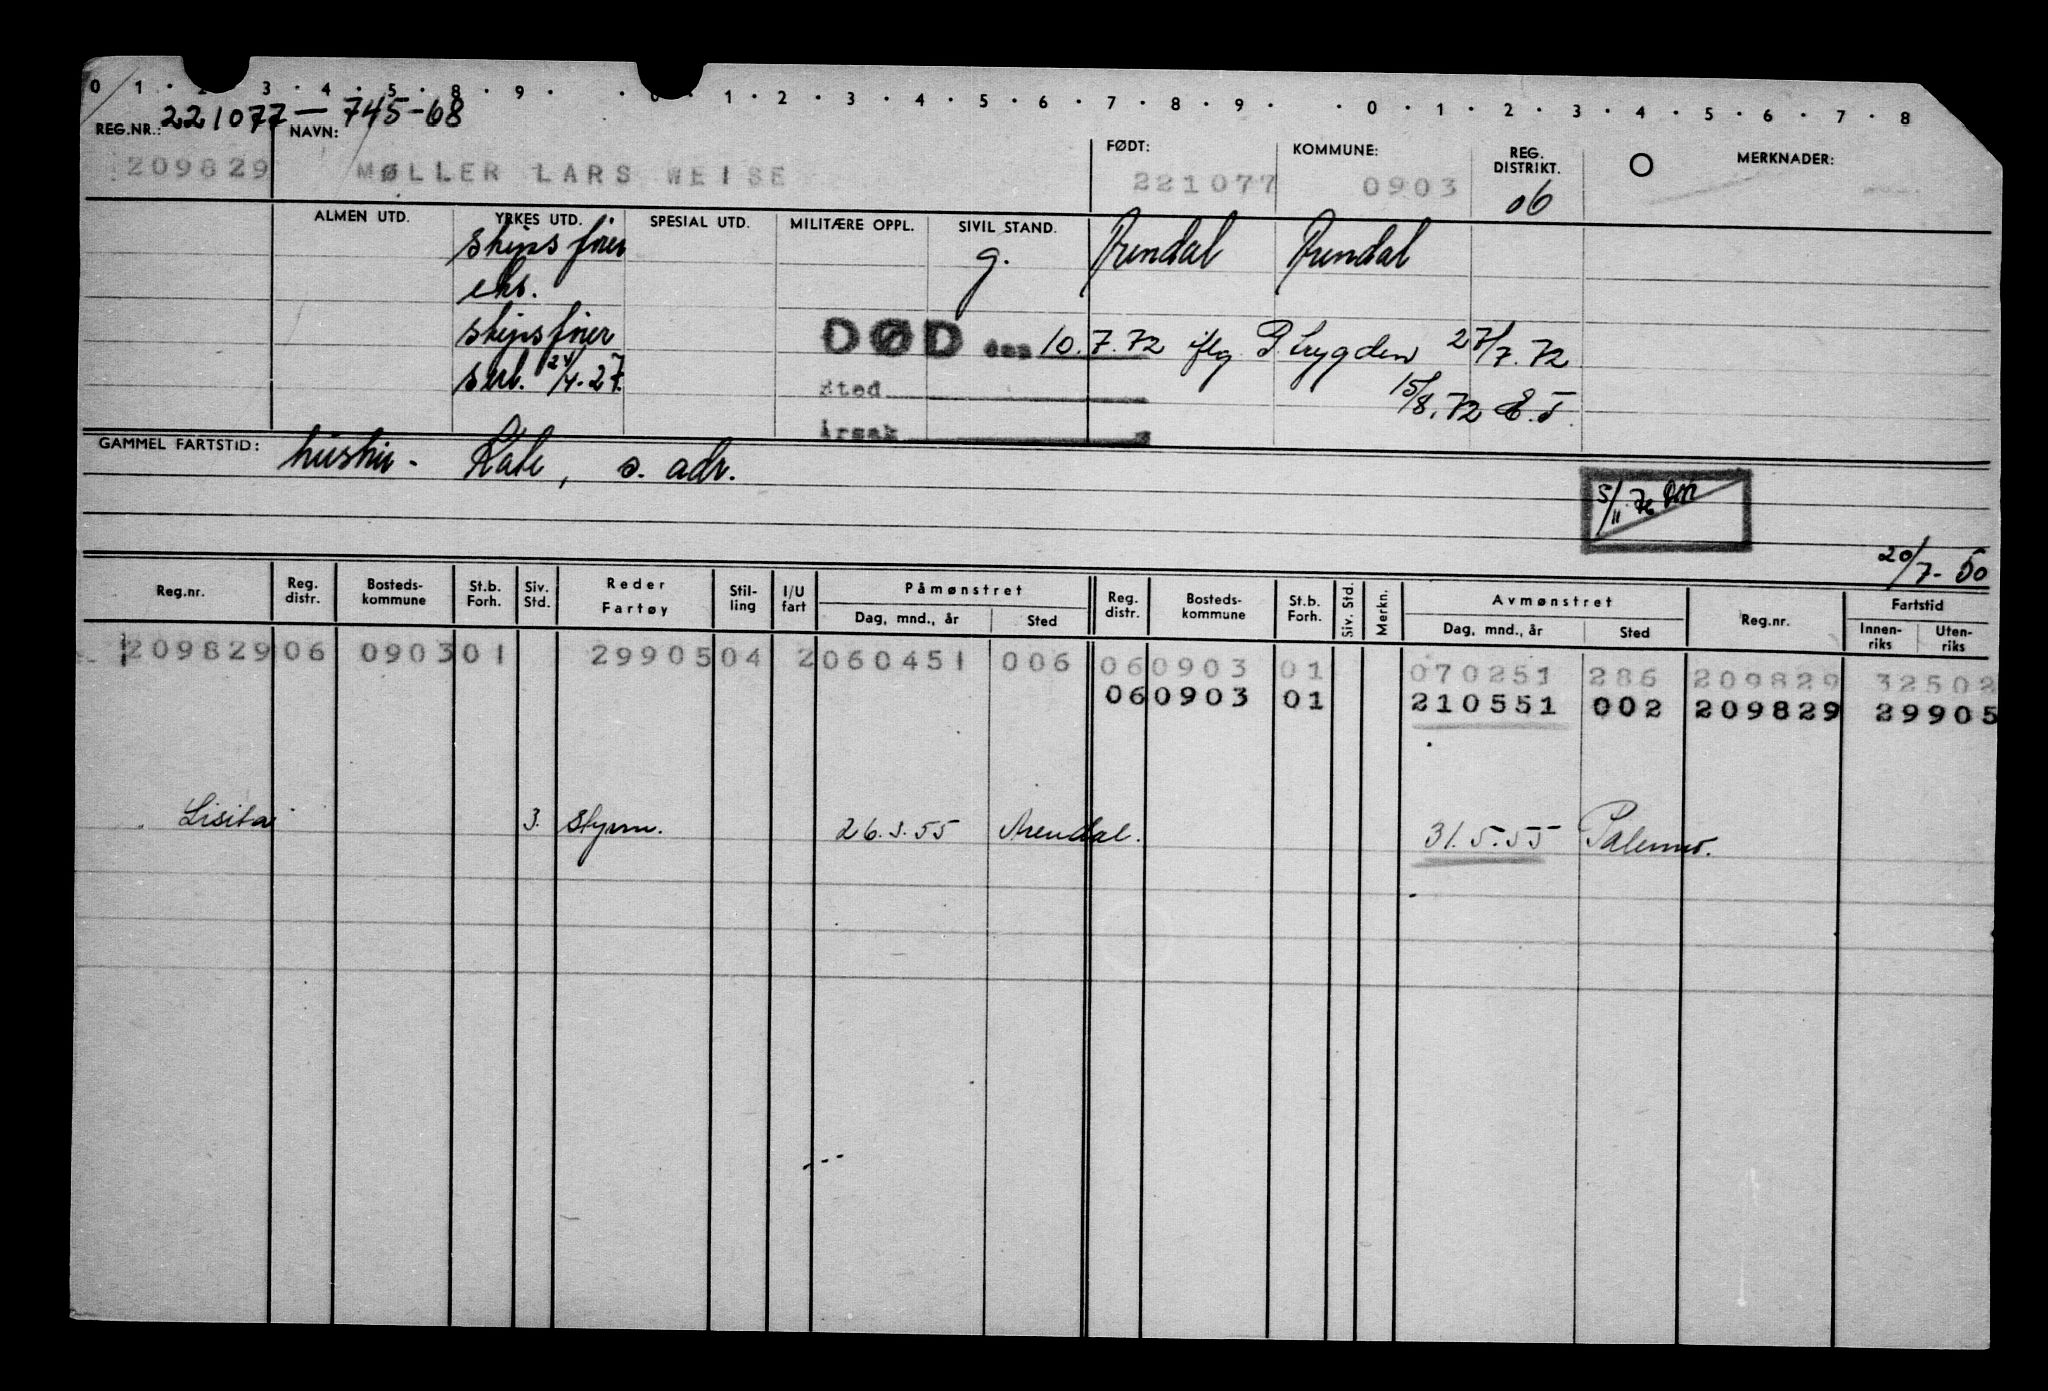 0 1 · 2 · 3 · 4 · 5 · 8 · 9 · · 0 · 1 · 2 · 3 · 4 · 5 · 6 · 7 · 8 · 9 · · 0 · 1 · 2 · 3 · 4 · 5 · 6 · 7 · 8
221077 — 745-68
REG.NR.: NAVN: FØDT: KOMMUNE: REG. DISTRIKT. MERKNADER:
209829 MØLLER LARS WEISE 221077 0903 06
ALMEN UTD. YRKES UTD. SPESIAL UTD. MILITÆRE OPPL. SIVIL STAND.
skipsfører g. Arendal Arendal
eks.
skipsfører DØD den 10.7.72 iflg. P. trygden 27/7.72
sert. 24/4.27. Sted 15/8.72 E.T.
Årsak
GAMMEL FARTSTID: hustru - Kate, s. adr.
5/11.76
20/7-50
Reg.nr. Reg. distr. Bosteds-kommune St.b. Forh. Siv. Std. Reder Fartøy Stil-ling I/U fart Påmønstret Reg. distr. Bosteds-kommune St.b. Forh. Siv. Std. Merkn. Avmønstret Reg.nr. Fartstid
Dag, mnd., år Sted Dag, mnd., år Sted Innen-riks Uten-riks
209829 06 0903 01 29905 04 2 060451 006 06 0903 01 070251 286 209829 32502
06 0903 01 210551 002 209829 29905
Lisita 3. styrm. 26.3.55 Arendal. 31.5.55 Palermo.